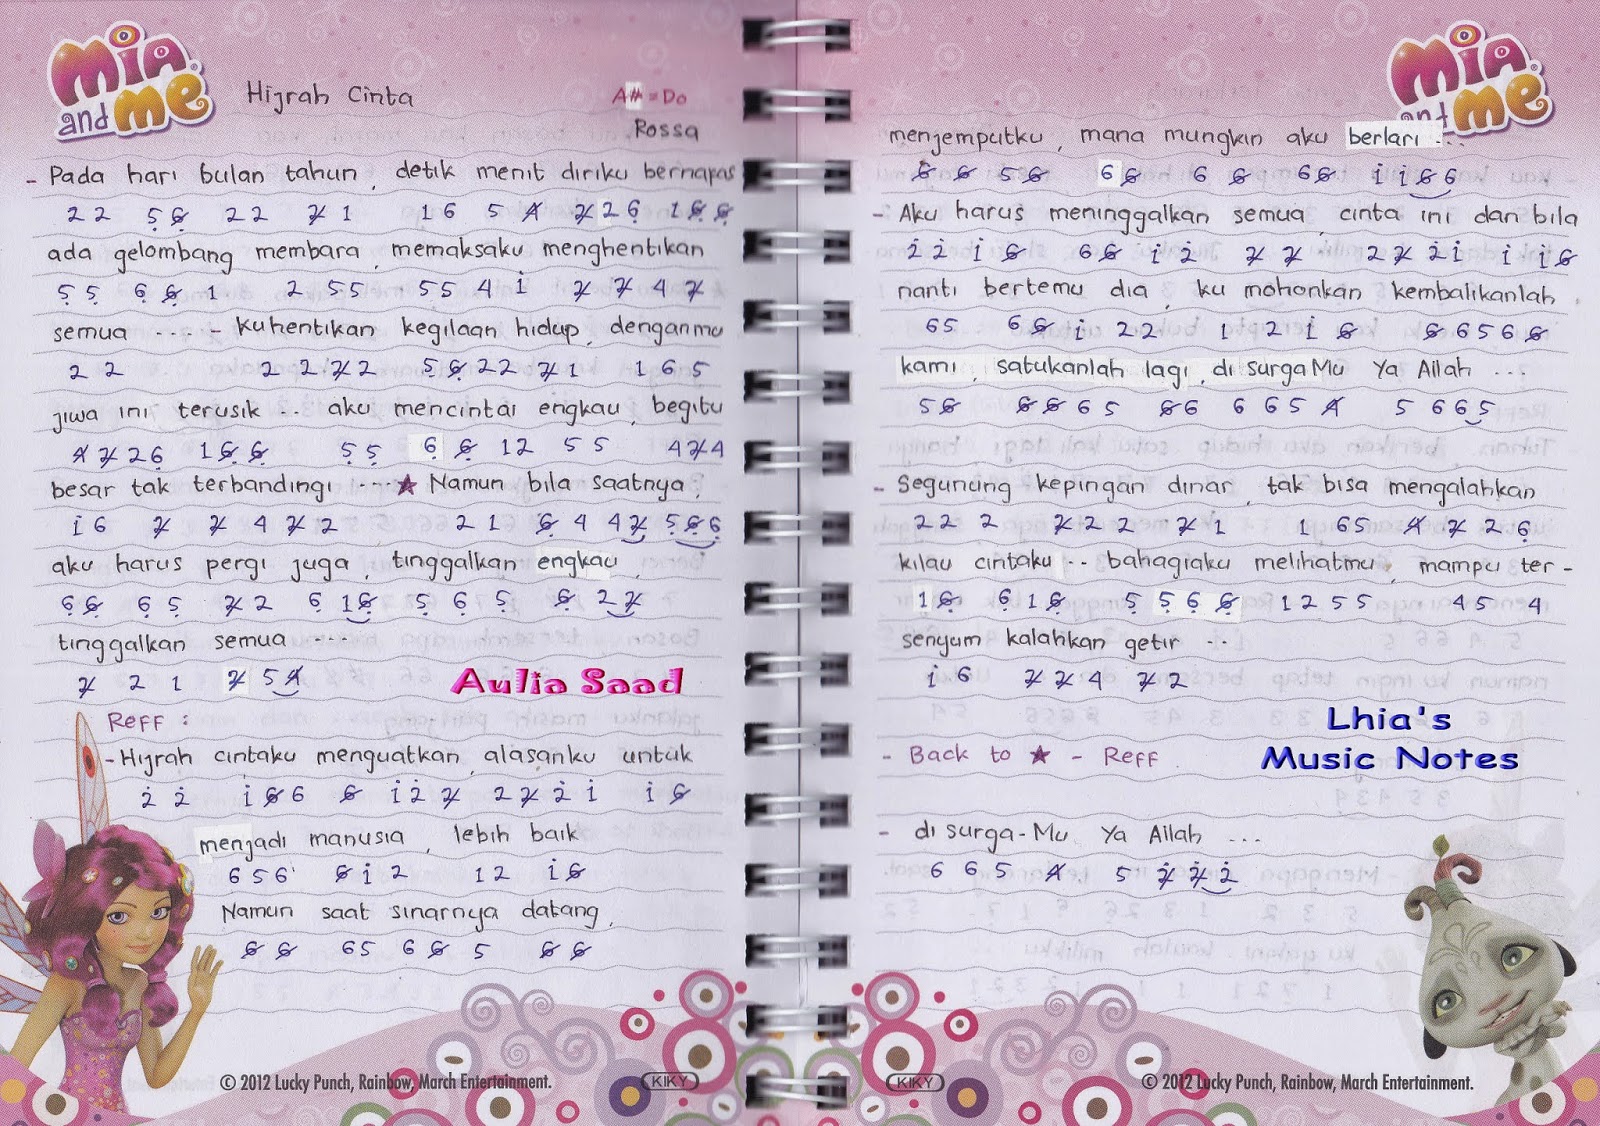 mia and me
Hijrah Cinta A# = Do
Rossa
- Pada hari bulan tahun, detik menit diriku bernapas
2 2 5 6 2 2 2 1 1 6 5 4 2 2 6 1 6 6
ada gelombang membara, memaksaku menghentikan
5 5 6 6 1 2 5 5 5 5 4 i 7 7 4 7
semua .... - kuhentikan kegilaan hidup, denganmu
2 2 2 2 2 2 5 6 2 2 2 1 1 6 5
jiwa ini terusik ... aku mencintai engkau, begitu
4 2 2 6 1 6 6 5 5 6 6 1 2 5 5 4 7 4
besar tak terbandingi ....★ Namun bila saatnya,
i 6 7 7 4 2 2 2 1 6 4 4 2 5 6 6
aku harus pergi juga, tinggalkan engkau,
6 6 6 5 2 2 6 1 6 5 6 5 6 2 2
tinggalkan semua ....
2 2 1 2 5 4
Aulia Saad
Reff :
- Hijrah cintaku menguatkan, alasanku untuk
2 2 i 6 6 6 i 2 2 2 2 2 i i 6
menjadi manusia, lebih baik
6 5 6 6 i 2 1 2 i 6
Namun saat sinarnya datang,
6 6 6 5 6 6 5 6 6
© 2012 Lucky Punch, Rainbow, March Entertainment.
KIKY
mia and me
menjemputku, mana mungkin aku berlari ...
6 6 5 6 6 6 6 6 6 6 i i 6 6
- Aku harus meninggalkan semua, cinta ini dan bila
2 2 i 6 6 6 i 2 2 2 2 2 2 i i i 6
nanti bertemu dia, ku mohonkan kembalikanlah
6 5 6 6 i 2 2 1 2 i 6 6 6 5 6 6
kami, satukanlah lagi, di surgaMu Ya Allah ...
5 6 6 6 6 5 6 6 6 6 5 4 5 6 6 5
- Segunung kepingan dinar, tak bisa mengalahkan
2 2 2 2 2 2 2 1 1 6 5 4 2 2 6
kilau cintaku .. bahagiaku melihatmu, mampu ter -
1 6 6 1 6 5 5 6 6 1 2 5 5 4 5 4
senyum kalahkan getir ..
i 6 7 7 4 7 2
Lhia's
Music Notes
- Back to ★ - Reff
- di surga-Mu Ya Allah ...
6 6 5 4 5 2 2 2
KIKY
© 2012 Lucky Punch, Rainbow, March Entertainment.